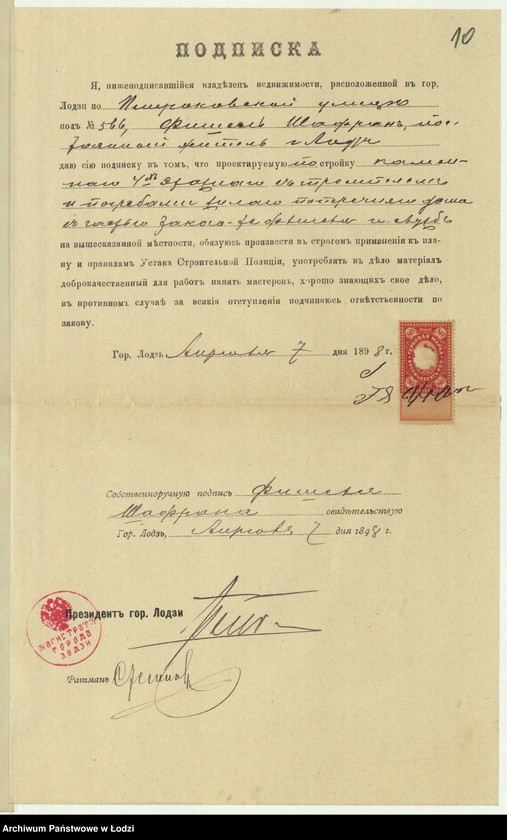 10
ПОДПИСКА
Я, нижеподписавшійся владѣлецъ недвижимости, расположенной въ гор.
Лодзи по Петроковской улицѣ
подъ № 566, Фишель Шафранъ, пос-
тоянный житель г. Лодзи
даю сію подписку въ томъ, что проектируемую постройку камен-
наго 4хъ этажнаго съ
и погребами жилаго дома
на вышесказанной мѣстности, обязуюсь произвести въ строгомъ примѣненіи къ пла-
ну и правиламъ Устава Строительной Полиціи, употребить въ дѣло матеріалъ
доброкачественный для работъ нанять мастеровъ, хорошо знающихъ свое дѣло,
въ противномъ случаѣ за всякія отступленія подчиняюсь отвѣтственности по
закону.
Гор. Лодзь Апрѣля 7 дня 1898 г.
80
80
Собственноручную подпись Фишеля
Шафрана свидѣтельствую
Гор. Лодзь, Апрѣля 7 дня 1898 г.
Президентъ гор. Лодзи
МАГИСТРАТЪ
ГОРОДА
ЛОДЗИ
Ратманъ
Archiwum Państwowe w Łodzi